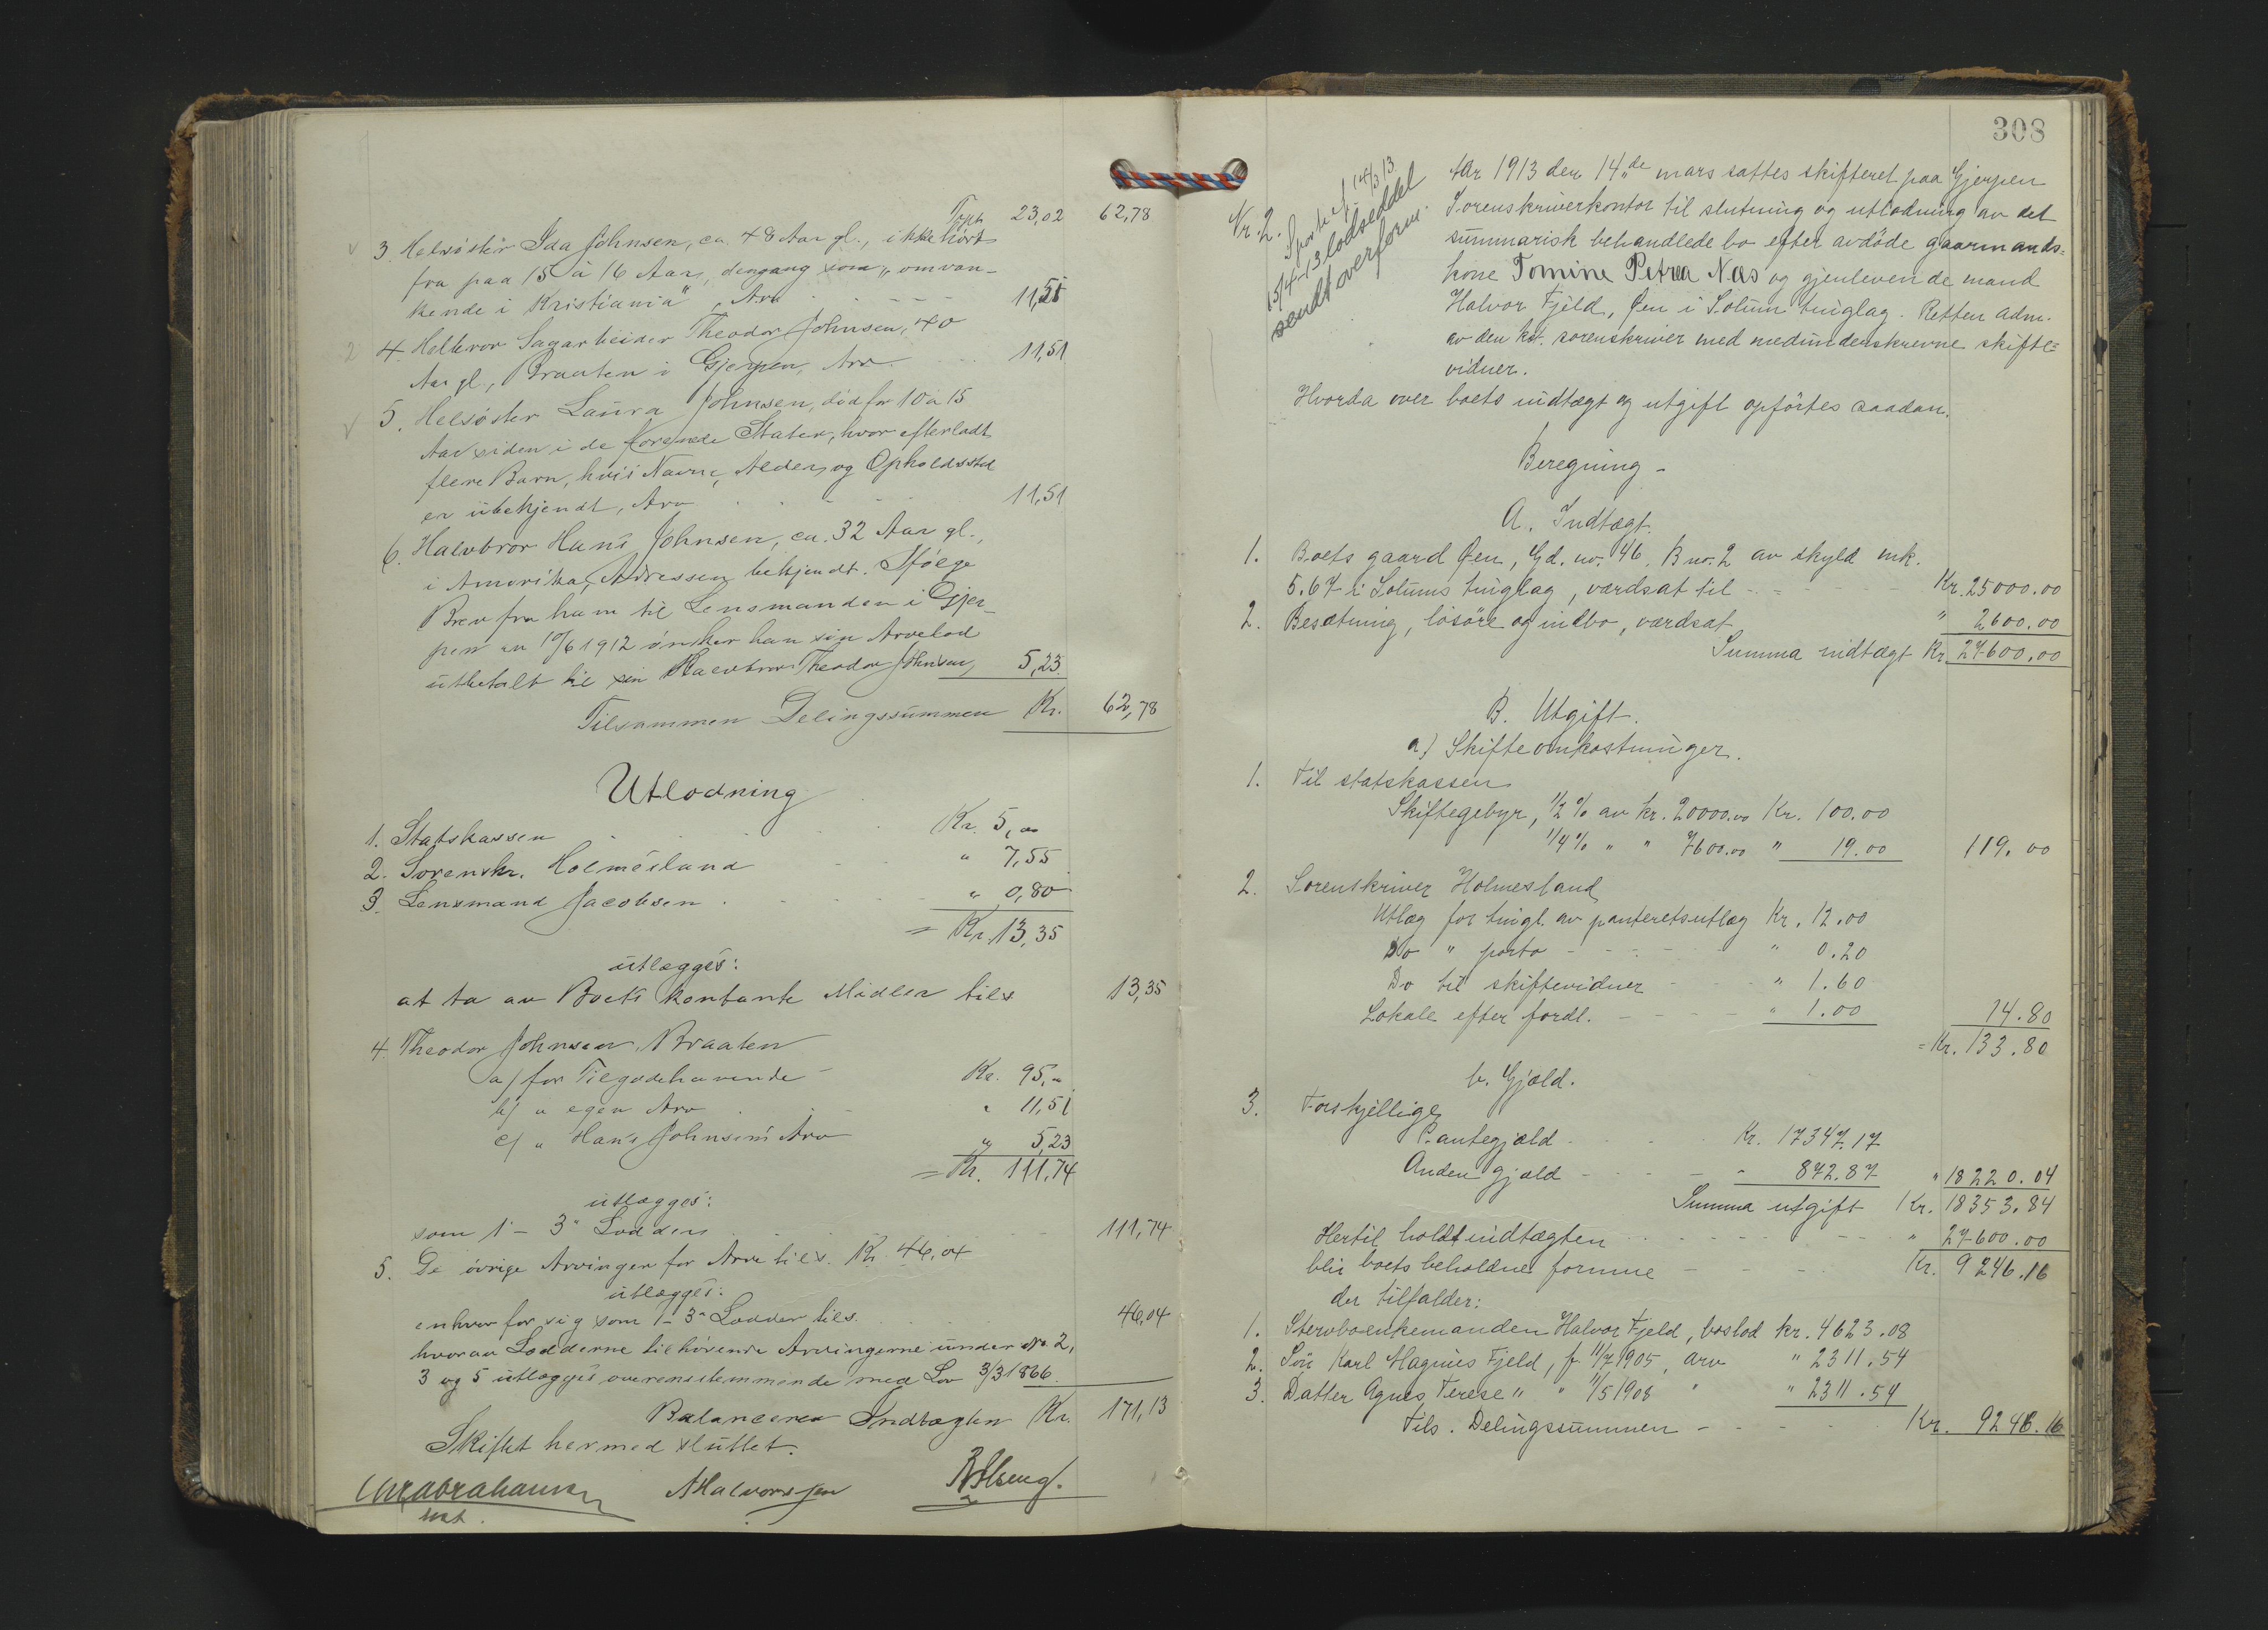 Trpt. 23,02 62,78
3. Helsøster Ida Johnsen, ca. 48 Aar gl., ikke hørt
fra paa 15 à 16 Aar, dengang som "omvan-
kende i Kristiania", Arv 11,51
4. Helbror Sagarbeider Theodor Johnsen, 40
Aar gl., Braaten i Gjerpen, Arv 11,51
5. Helsøster Laura Johnsen, død for 10 à 15
Aar siden i de forenede Stater, hvor efterladt
flere Barn, hvis Navne, Alder og Opholdssted
er ubekjendt, Arv 11,51
6. Halvbror Hans Johnsen, ca. 32 Aar gl.,
i Amerika, Adressen bekjendt. Ifølge
Brev fra ham til Lensmanden i Gjer-
pen av 10/6 1912 ønsker han sin Arvelod
utbetalt til sin Halvbror Theodor Johnsen, 5,23
Tilsammen Delingssummen Kr. 62,78
Utlodning
1. Statskassen Kr. 5,00
2. Sorenskr. Holmesland " 7,55
3. Lensmand Jacobsen " 0,80
= Kr. 13,35
utlægges:
at ta av Boets kontante Midler tils 13,35
4. Theodor Johnsen, Braaten
a/ for Tilgodehavende Kr. 95,-
b/ " egen Arv " 11,51
c/ " Hans Johnsens Arv " 5,23
= Kr. 111,74
utlægges:
som 1 - 3 Lodder 111,74
5. De øvrige Arvinger for Arv tils. Kr. 46,04
utlægges:
enhver for sig som 1 - 3 Lodder tils. 46,04
hvorav Lodderne tilhørende Arvingerne under No. 2,
3 og 5 utlægges overensstemmende med Lov 3/3 1866.
Balancerer Indtægten Kr. 171,13
Skiftet hermed sluttet.
Chr Abrahamsen A Halvorsen
kst.
308
Nr. 2.
Sportel 14/3 13
15/4-13 lodseddel
sendt overform.
Aar 1913 den 14de mars sattes skifteret paa Gjerpen
Sorenskriverkontor til slutning og utlodning av det
summarisk behandlede bo efter avdøde gaarmands-
kone Tomine Petrea Næs og gjenlevende mand
Halvor Fjeld, Øen i Solum tinglag. Retten adm.
av den kst. sorenskriver med medunderskrevne skifte-
vidner.
Hvorda over boets indtægt og utgift opførtes saadan.
Beregning -
A. Indtægt.
1. Boets gaard Øen, Gd. no. 46, B no. 2 av skyld mk.
5.67 i Solums tinglag, værdsat til Kr. 25000.00
2. Besætning, løsøre og indbo, værdsat " 2600.00
Summa indtægt Kr. 27600.00
B. Utgift.
a) Skifteomkostninger.
1. Til statskassen
Skiftegebyr, 1/2 % av kr. 20000.00 Kr. 100.00
1/4 % " " 7600.00 " 19.00 119.00
2. Sorenskriver Holmesland
Utlæg for tingl. av panteretsutlæg Kr. 12.00
Do " porto " 0.20
Do til skiftevidner " 1.60
Lokale efter fordl. " 1.00 14.80
= Kr. 133.80
b. Gjæld.
3. Forskjellige
Pantegjæld Kr. 17347.17
Anden gjæld " 872.87 " 18220.04
Summa utgift Kr. 18353.84
Hertil holdt indtægten " 27600.00
blir boets beholdne formue Kr. 9246.16
der tilfalder:
1. Stervboenkemanden Halvor Fjeld, boslod kr. 4623.08
2. Søn Karl Magnus Fjeld, f. 11/7 1905, arv " 2311.54
3. Datter Agnes Terese " " 11/5 1908 " " 2311.54
Tils. Delingssummen Kr. 9246.16